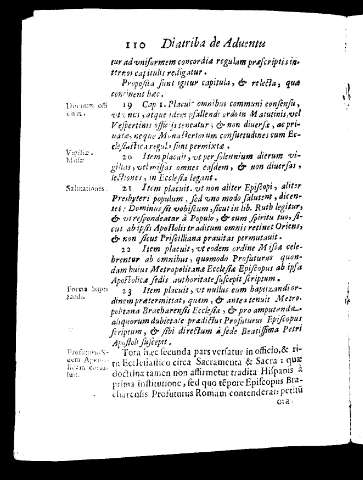 110 Diatriba de Aduentu
tur ad vniformem concordiæ regulam præscriptis in-
terea capitulis redigatur.
Proposita sunt igitur capitula, & relecta, quæ
continent hæc.
19 Cap 1. Placuit omnibus communi consensu,
vt vnus, atque idem psallendi ordo in Matutinis, vel
Vespertinis officijs teneatur, & non diuersæ, ac pri-
uatæ, neque Monasteriorum consuetudines cum Ec-
clesiastica regula sint permixtæ.
Vigiliæ.
Missæ
20 Item placuit, vt per solennium dierum vi-
gilias, vel missas omnes easdem, & non diuersas,
lectiones, in Ecclesia legant.
Salutationes.
21 Item placuit, vt non aliter Episcopi, aliter
Presbyteri populum, sed vno modo salutent, dicen-
tes: Dominus sit vobiscum, sicut in lib. Ruth legitur,
& vt respondeatur à Populo, & cum spiritu tuo, si-
cut ab ipsis Apostolis traditum omnis retinet Oriens,
& non sicut Priscilliana prauitas permutauit.
22 Item placuit, vt eodem ordine Missæ cele-
brentur ab omnibus, quomodo Profuturus quon-
dam huius Metropolitanæ Ecclesiæ Episcopus ab ipsa
Apostolicæ sedis authoritate suscepit scriptum.
Forma bapti
zandi.
23 Item placuit, vt nullus eum baptizandi or-
dinem prætermittat, quem, & ante tenuit Metro-
politana Bracharensis Ecclesia, & pro amputanda
aliquorum dubietate prædictus Profuturus Episcopus
scriptum, & sibi directum à sede Beatissimi Petri
Apostoli suscepit.
Tota hæc secunda pars versatur in officio, & ri-
tu Ecclesiastico circa Sacramenta & Sacra: quæ
doctrina tamen non affirmetur tradita Hispanis à
prima institutione, sed quo tēpore Episcopus Bra-
charensis Profuturus Romam contenderat: petitū